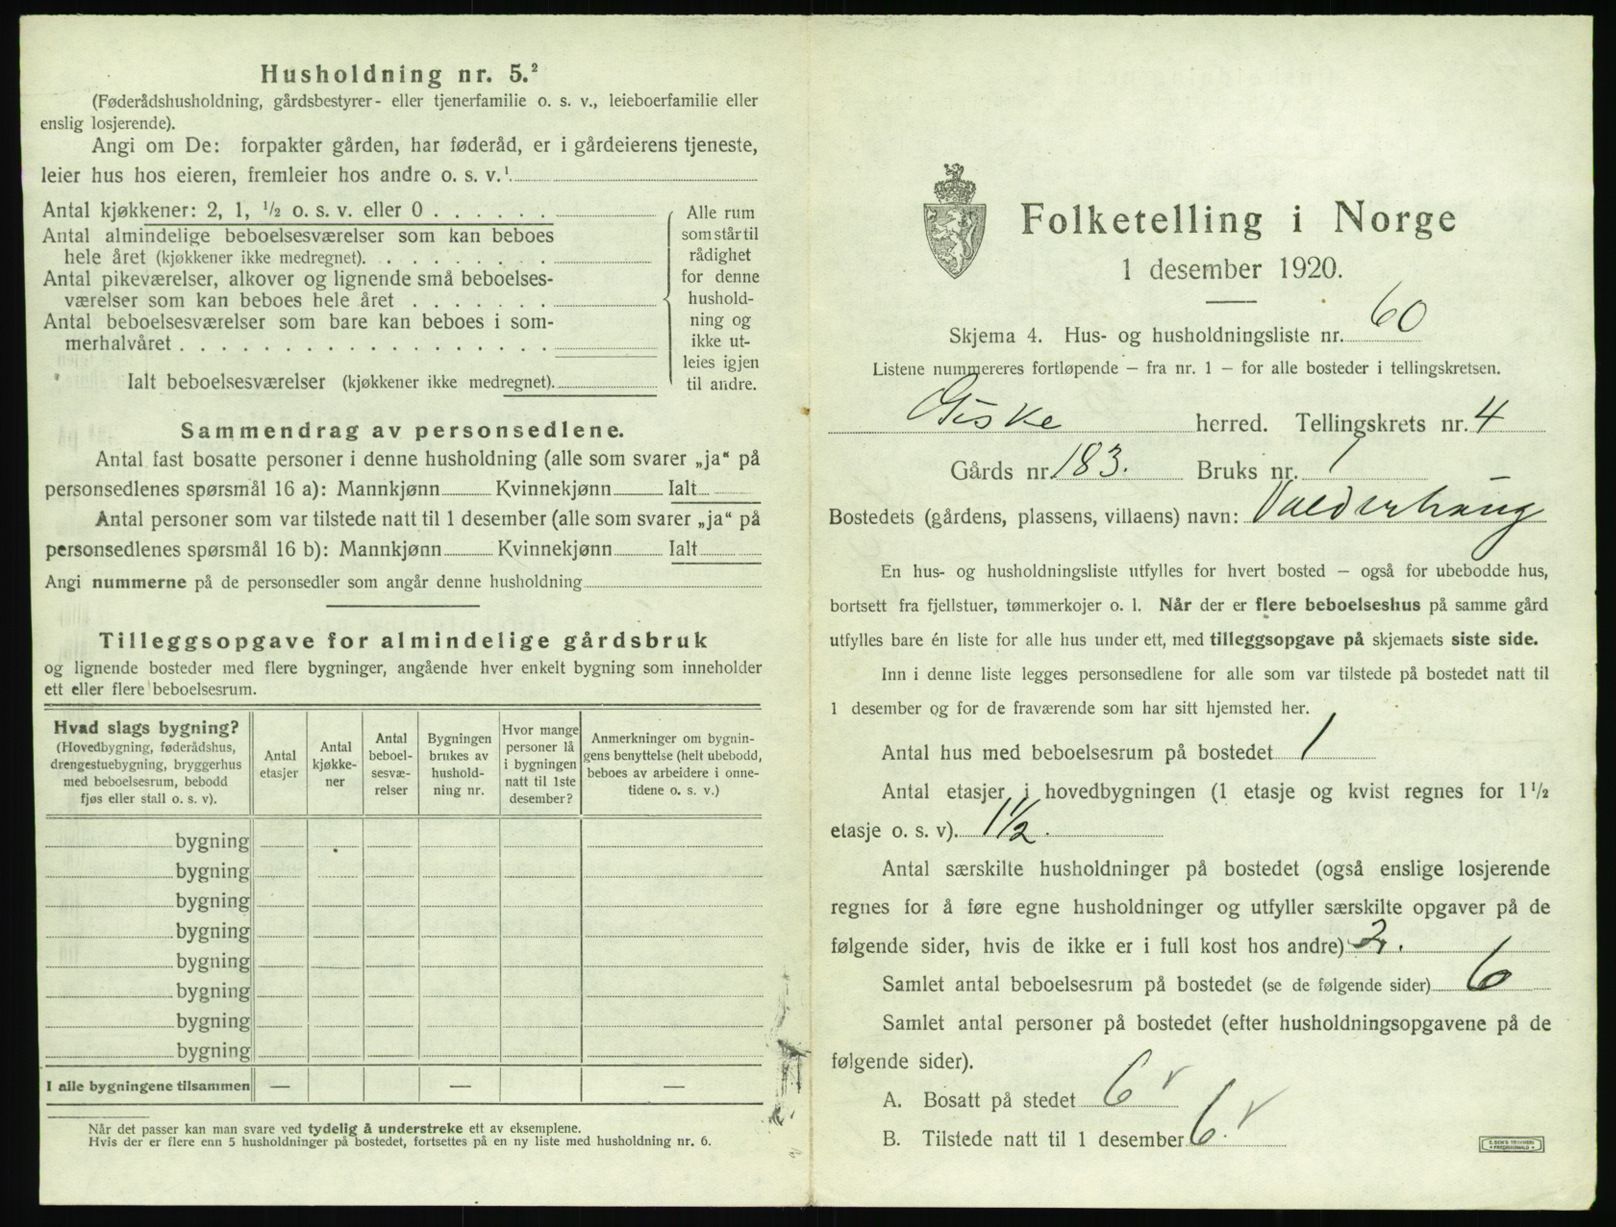 Husholdning nr. 5.²
(Føderådshusholdning, gårdsbestyrer- eller tjenerfamilie o. s. v., leieboerfamilie eller
enslig losjerende).
Angi om De: forpakter gården, har føderåd, er i gårdeierens tjeneste,
leier hus hos eieren, fremleier hos andre o. s. v.¹
Antal kjøkkener: 2, 1, ½ o. s. v. eller 0 . . . . . .
Antal almindelige beboelsesværelser som kan beboes
hele året (kjøkkener ikke medregnet). . . . . . . . .
Antal pikeværelser, alkover og lignende små beboelses-
værelser som kan beboes hele året . . . . . . .
Antal beboelsesværelser som bare kan beboes i som-
merhalvåret . . . . . . . . . . . . . . . . . .
Ialt beboelsesværelser (kjøkkener ikke medregnet).
Alle rum
som står til
rådighet
for denne
hushold-
ning og
ikke ut-
leies igjen
til andre.
Sammendrag av personsedlene.
Antal fast bosatte personer i denne husholdning (alle som svarer „ja“ på
personsedlenes spørsmål 16 a): Mannkjønn Kvinnekjønn Ialt
Antal personer som var tilstede natt til 1 desember (alle som svarer „ja“ på
personsedlenes spørsmål 16 b): Mannkjønn Kvinnekjønn Ialt
Angi nummerne på de personsedler som angår denne husholdning
Tilleggsopgave for almindelige gårdsbruk
og lignende bosteder med flere bygninger, angående hver enkelt bygning som inneholder
ett eller flere beboelsesrum.
Hvad slags bygning?
(Hovedbygning, føderådshus,
drengestuebygning, bryggerhus
med beboelsesrum, bebodd
fjøs eller stall o. s. v).
Antal
etasjer
Antal
kjøkke-
ner
Antal
beboel-
sesvæ-
relser
Bygningen
brukes av
hushold-
ning nr.
Hvor mange
personer lå
i bygningen
natt til 1ste
desember?
Anmerkninger om bygnin-
gens benyttelse (helt ubebodd,
beboes av arbeidere i onne-
tidene o. s. v.)
bygning
bygning
bygning
bygning
bygning
bygning
bygning
bygning
I alle bygningene tilsammen — — —
Når det passer kan man svare ved tydelig å understreke ett av eksemplene.
Hvis der er flere enn 5 husholdninger på bostedet, fortsettes på en ny liste med husholdning nr. 6.
Folketelling i Norge
1 desember 1920.
Skjema 4. Hus- og husholdningsliste nr. 60
Listene nummereres fortløpende – fra nr. 1 – for alle bosteder i tellingskretsen.
Giske herred. Tellingskrets nr. 4
Gårds nr. 183. Bruks nr. 1
Bostedets (gårdens, plassens, villaens) navn: Valderhaug
En hus- og husholdningsliste utfylles for hvert bosted – også for ubebodde hus,
bortsett fra fjellstuer, tømmerkojer o. l. Når der er flere beboelseshus på samme gård
utfylles bare én liste for alle hus under ett, med tilleggsopgave på skjemaets siste side.
Inn i denne liste legges personsedlene for alle som var tilstede på bostedet natt til
1 desember og for de fraværende som har sitt hjemsted her.
Antal hus med beboelsesrum på bostedet 1
Antal etasjer i hovedbygningen (1 etasje og kvist regnes for 1½
etasje o. s. v). 1½.
Antal særskilte husholdninger på bostedet (også enslige losjerende
regnes for å føre egne husholdninger og utfyller særskilte opgaver på de
følgende sider, hvis de ikke er i full kost hos andre) 2.
Samlet antal beboelsesrum på bostedet (se de følgende sider) 6
Samlet antal personer på bostedet (efter husholdningsopgavene på de
følgende sider).
A. Bosatt på stedet 6 v
B. Tilstede natt til 1 desember 6. v